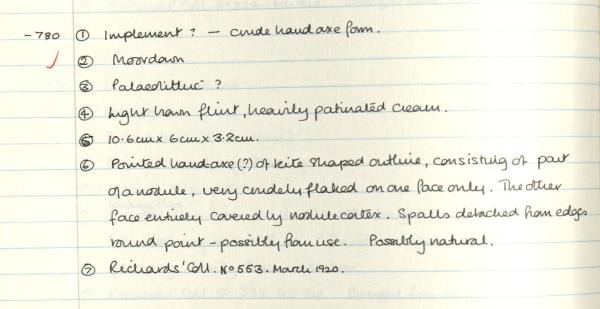 -780 ① Implement ? — crude handaxe form.
② Moordown
③ Palaeolithic ?
④ Light brown flint, heavily patinated cream.
⑤ 10.6cm x 6cm x 3.2cm.
⑥ Pointed handaxe (?) of kite shaped outline, consisting of part
of a nodule, very crudely flaked on one face only. The other
face entirely covered by nodule cortex. Spalls detached from edges
round point - possibly from use. Possibly natural.
⑦ Richards' Coll. Nº 553. March 1920.